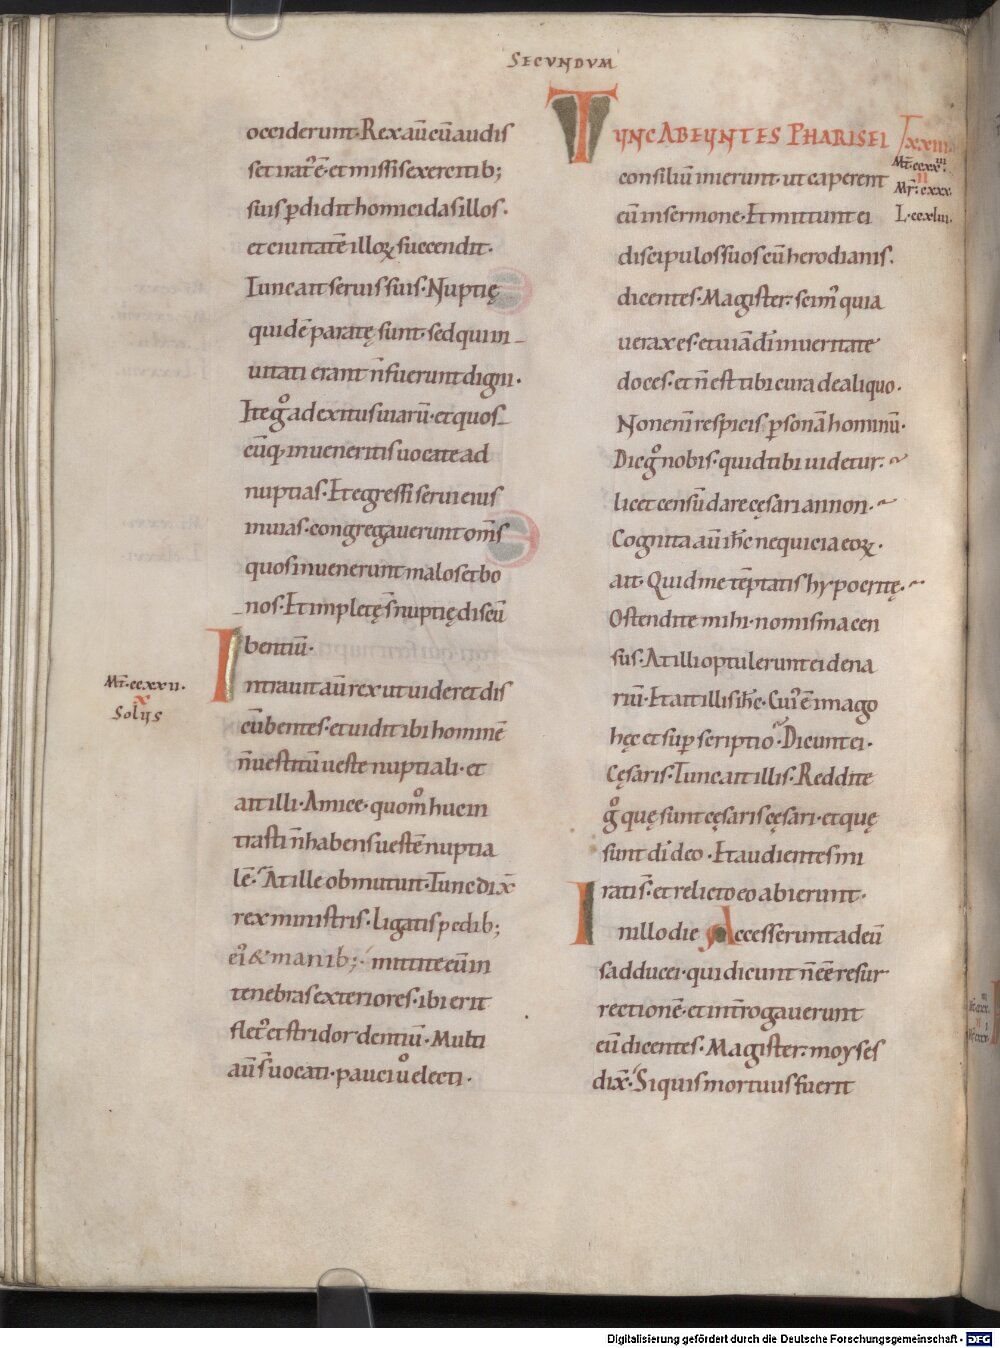 SECVNDVM
occiderunt· Rex aū cū audis
set irat᷒ ē· et missis exercitib;
suis ꝑdidit homicidas illos·
et ciuitatē illoꝝ succendit·
Tunc ait seruis suis· Nuptię
quidē paratę sunt· sed qui in
uitati erant n̄ fuerunt digni·
Ite gͦ ad exitus uiarū· et quos
cūq· inueneritis uocate ad
nuptias· Et egressi serui eius
in uias· congregauerunt om̄s
quos inuenerunt malos et bo
nos· Et impletę s̄ nuptię discū
bentiū·
Mt̄· ccxxii·
x
Solus
Intrauit aū rex ut uideret dis
cūbentes· et uidit ibi hominē
n̄ uestitū ueste nuptiali· et
ait illi· Amice· quomͦ huc in
trasti n̄ habens uestē nuptia
lē· At ille obmutuit· Tunc dix̄
rex ministris· ligatis pedib;
ei᷒ & manib;· mittite eū in
tenebras exteriores· ibi erit
flet᷒ et stridor dentiū· Multi
aū s̄ uocati· pauci uͦ electi·
TUNC ABEUNTES PHARISEI
consiliū inierunt· ut caperent
eū in sermone· Et mittunt ei
discipulos suos cū herodianis·
dicentes· Magister· scim᷒ quia
uerax es· et uiā dī in ueritate
doces· et n̄ est tibi cura de aliquo·
Non eni᷒ respicis ꝑsonā hominū·
Dic gͦ nobis· quid tibi uidetur·
licet censū dare cęsari an non·
Cognita aū ih̄c nequicia eoꝝ·
ait· Quid me tēptatis hypocritę·
Ostendite mihi· nomisma cen
sus· At illi optulerunt ei dena
riū· Et ait illis ih̄c· Cui᷒ ē imago
hęc et sup scriptio· Dicunt ei·
Cęsaris· Tunc ait illis· Reddite
gͦ quę sunt cęsaris cęsari· et quę
sunt dī deo· Et audientes mi
rati s̄· et relicto eo abierunt·
In illo die Accesserunt ad eū
sadducei· qui dicunt n̄ eē resur
rectionē· et int̄rogauerunt
eū dicentes· Magister· moyses
dix̄· Si quis mortuus fuerit
Mt̄· ccxxiii·
ii
Mr̄· cxxx·
L· ccxliii·
Digitalisierung gefördert durch die Deutsche Forschungsgemeinschaft - DFG